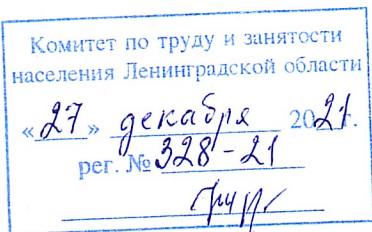 Комитет по труду и занятости
населения Ленинградской области
«27» декабря 2021г.
рег. № 328-21